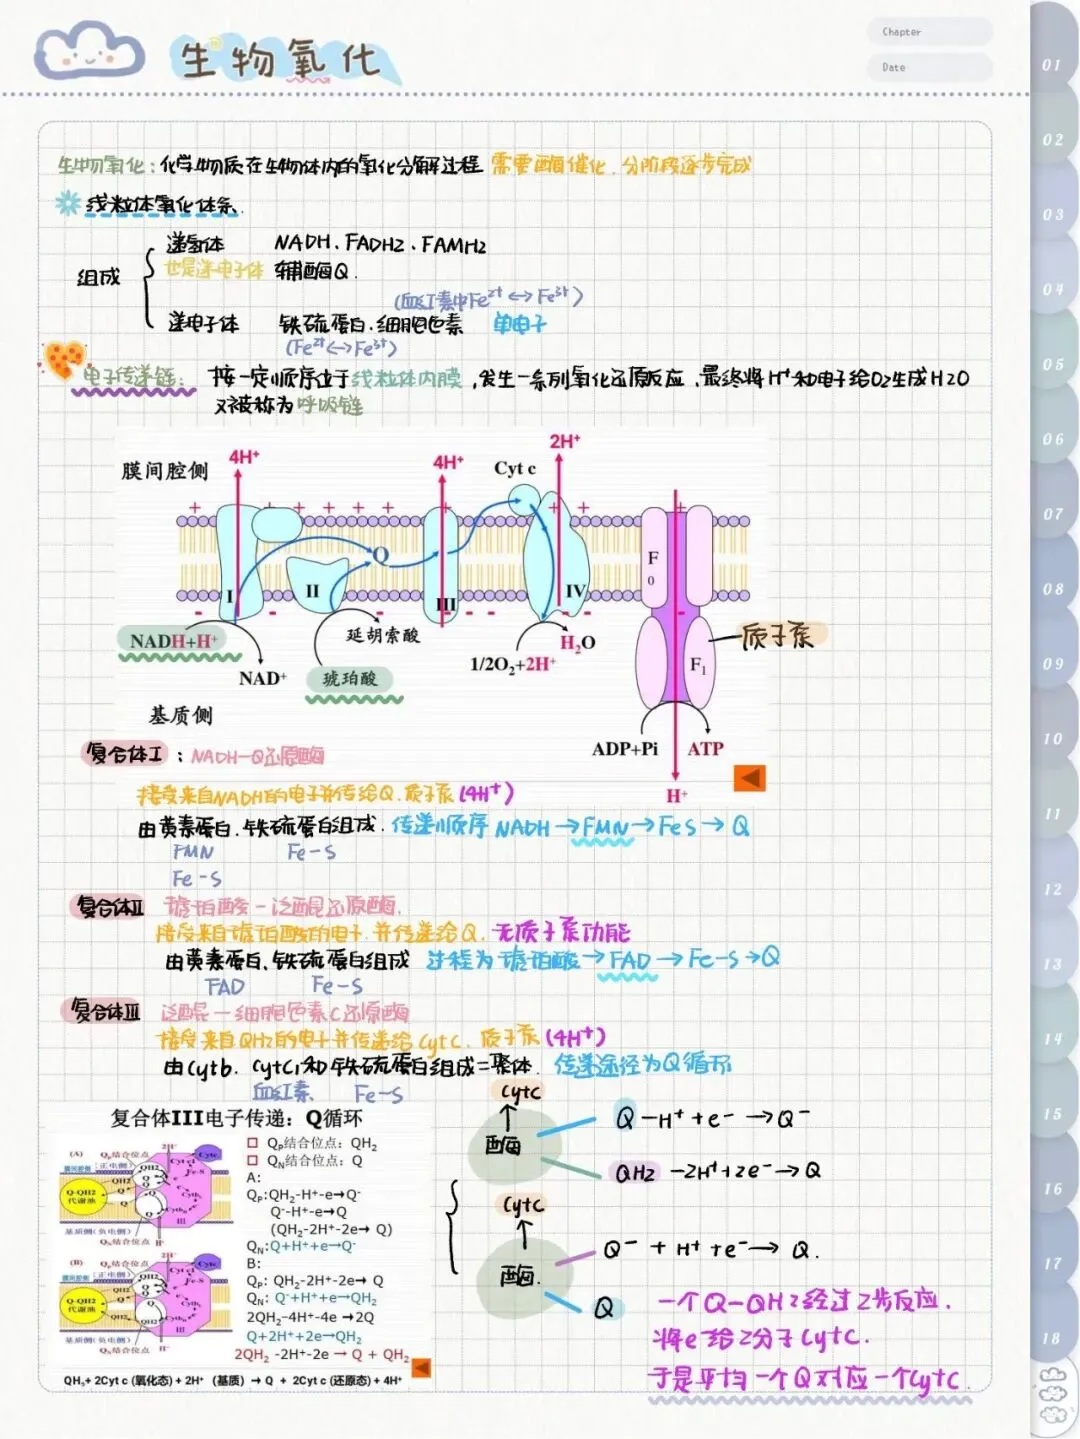 生物氧化
Chapter
Date
生物氧化：化学物质在生物体内的氧化分解过程 需要酶催化．分阶段逐步完成
线粒体氧化体系．
组成
递氢体 NADH、FADH2、FAMH2
也是递电子体 辅酶Q．
(血红素中Fe²⁺<->Fe³⁺)
递电子体 铁硫蛋白．细胞色素 单电子
(Fe²⁺<->Fe³⁺)
电子传递链： 按一定顺序位于线粒体内膜，发生一系列氧化还原反应，最终将H⁺和电子给O2生成H2O
又被称为呼吸链
膜间腔侧
4H⁺
4H⁺
Cyt c
2H⁺
+ + + + + + + +
I
II
Q
III
IV
F0
F₁
NADH+H⁺
NAD⁺
延胡索酸
琥珀酸
1/2O₂+2H⁺
H₂O
质子泵
基质侧
ADP+Pi
ATP
H⁺
复合体I：NADH-Q还原酶
接受来自NADH的电子并传给Q．质子泵(4H⁺)
由黄素蛋白．铁硫蛋白组成．传递顺序 NADH→FMN→FeS→Q
FMN Fe-S
Fe-S
复合体II 琥珀酸-泛醌还原酶．
接受来自琥珀酸的电子．并传递给Q．无质子泵功能
由黄素蛋白、铁硫蛋白组成 过程为 琥珀酸→FAD→Fe-S→Q
FAD Fe-S
复合体III 泛醌-细胞色素C还原酶
接受来自QH2的电子并传递给CytC．质子泵(4H⁺)
由Cytb．CytC1和铁硫蛋白组成二聚体．传递途径为Q循环
血红素 Fe-S
复合体III电子传递：Q循环
(A)
Q_P结合位点
2H⁺
Cytc
膜间腔侧
(正电侧)
QH2
Cyt c1
Fe-S
Q-QH2
代谢池
Q
Cytb
III
基质侧(负电侧)
Q_N结合位点
H⁺
(B)
Q_P结合位点
2H⁺
Cytc
膜间腔侧
(正电侧)
QH2
Cyt c1
Fe-S
Q-QH2
代谢池
QH2
Cytb
III
基质侧(负电侧)
Q_N结合位点
H⁺
□ Q_P结合位点：QH₂
□ Q_N结合位点：Q
A:
Q_P:QH₂-H⁺-e→Q⁻
Q⁻-H⁺-e→Q
(QH₂-2H⁺-2e→ Q)
Q_N:Q+H⁺+e→Q⁻
B:
Q_P: QH₂-2H⁺-2e→ Q
Q_N: Q⁻+H⁺+e→QH₂
2QH₂-4H⁺-4e →2Q
Q+2H⁺+2e→QH₂
2QH₂ -2H⁺-2e → Q + QH₂
QH₂+ 2Cyt c (氧化态) + 2H⁺ (基质) → Q + 2Cyt c (还原态) + 4H⁺
CytC
酶
Q -H⁺+e⁻→Q⁻
QH2 -2H⁺+2e⁻→Q
CytC
酶．
Q⁻ + H⁺ +e⁻→ Q．
Q
一个Q-QH2经过2步反应．
将e⁻给2分子CytC．
于是平均一个Q对应一个CytC．
01
02
03
04
05
06
07
08
09
10
11
12
13
14
15
16
17
18